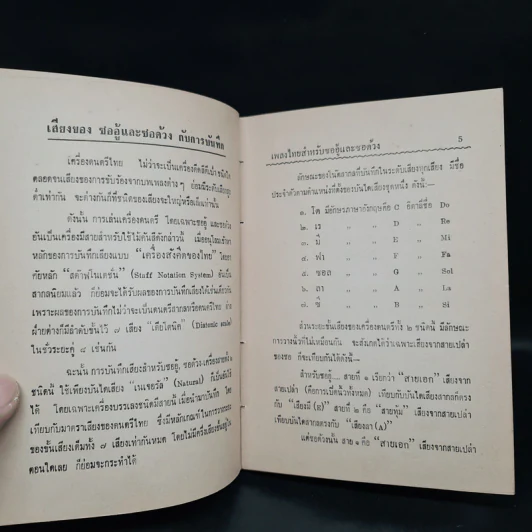 เสียงของ ซออู้และซอด้วง กับการบันทึก
เครื่องดนตรีไทย ไม่ว่าจะเป็นเครื่องดีดสีตีเป่า ชนิดใด
ตลอดจนเสียงของการขับร้องจากบทเพลงต่าง ๆ ย่อมมีระดับเสียงสูง
ต่ำเท่ากัน จะต่างกันก็ที่ชนิดของเสียงจะใหญ่หรือเล็กเท่านั้น
ดังนั้น การเล่นเครื่องดนตรี โดยเฉพาะซออู้ และซอด้วง
อันเป็นเครื่องมีสายสำหรับใช้ไม้คันสีดังกล่าวนี้ เมื่ออนุโลมเข้าหา
หลักของการบันทึกเสียงแบบ "เครื่องสังคีตของไทย" โดยอา
ศัยหลัก "สต๊าฟโนเตชั่น" (Staff Notation System) อันเป็น
สากลนิยมแล้ว ก็ย่อมจะได้รับผลของการบันทึกเสียงให้เช่นเดียวกัน
เพราะผลของการบันทึกไม่ว่าจะเป็นดนตรีสากลหรือดนตรีไทย ต่าง
ฝ่ายต่างก็มีลำดับขั้นไว้ ๗ เสียง "เดียโตนิค" (Diatonic scale)
ในช่วงระยะคู่ ๘ เช่นกัน
ฉะนั้น การบันทึกเสียงสำหรับซออู้, ซอด้วง เครื่องสายทั้ง ๒
ชนิดนี้ ใช้เพียงบันไดเสียง "เนเชอรัล" (Natural) ก็เป็นอันใช้
ได้ โดยเฉพาะเครื่องบรรเลงชนิดมีสายนี้ เมื่อนำมาบันทึก โดย
เทียบกับมาตราเสียงของดนตรีไทย ซึ่งมีหลักเกณฑ์ในการวางระยะ
ของขั้นเสียงเต็มทั้ง ๗ เสียงเท่ากันหมด โดยไม่มีครึ่งเสียงขั้นอยู่ใน
ตอนใดเลย ก็ย่อมจะกระทำได้
เพลงไทยสำหรับซออู้และซอด้วง ๕
ลักษณะของโน้ตสากลที่บันทึกในระดับเสียงทุกเสียง มีชื่อ
ประจำตัวตามตำแหน่งที่ตั้งของบันไดเสียงชุดหนึ่ง ดังนี้:—
๑. โด มีอักษรภาษาอังกฤษคือ C อิตาลีชื่อ Do
๒. เร " D " Re
๓. มี " E " Mi
๔. ฟา " F " Fa
๕. ซอล " G " Sol
๖. ลา " A " La
๗. ซี " B " Si
ส่วนระยะขั้นเสียงของเครื่องดนตรีทั้ง ๒ ชนิดนี้ มีลักษณะ
การวางนิ้วที่ไม่เหมือนกัน จะสังเกตได้ว่าเฉพาะเสียงจากสายเปล่า
ของซอ ก็จะเทียบกันได้ดังนี้—
สำหรับซออู้... สายที่ ๑ เรียกว่า "สายเอก" เสียงจาก
สายเปล่า (คือการเปิดนิ้วทั้งหมด) เทียบกับบันไดเสียงสากลก็ตรง
กับ "เสียงมี (E)" สายที่ ๒ คือ "สายทุ้ม" เสียงจากสายเปล่า
เทียบบันไดสากลตรงกับ "เสียงลา (A)"
แต่ซอด้วงนั้น สาย ๑ คือ "สายเอก" เสียงจากสายเปล่า